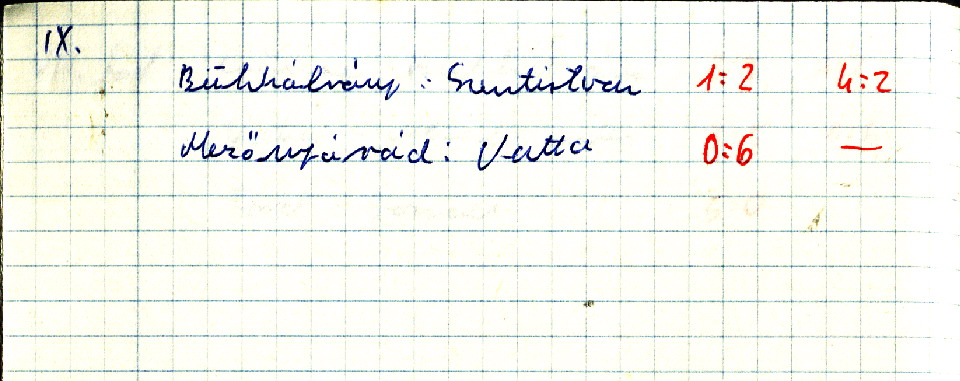 IX.
Bükkábrány : Szentistván 1:2 4:2
Mezőnyárád : Vatta 0:6 —